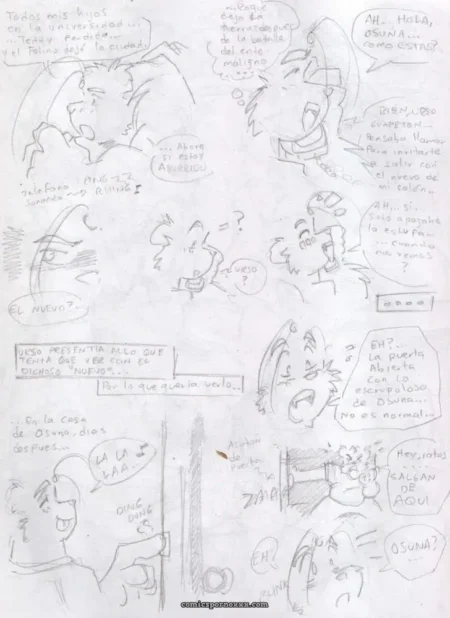 Todos mis hijos
en la universidad...
...Teddy perdida...
y el Felino dejó la ciudad.
milagro
dejo la
tierra despues
de la batalla
del ente
maligno...
AH.. HOLA,
OSUNA...
COMO ESTAS?
... Ahora
si estoy
ABURRIDO
Telefono
sonando
RIIING!
BIEN, URSO
GUAPETON...
Pensaba llamar
Para invitarte
a salir con
el nuevo de
mi salón.
AH.. SI.
Solo apagaba
la estufa..
... cuando
nos vemos
?
= ?
URSO
?
EL NUEVO?..
URSO PRESENTIA ALGO QUE
TENIA QUE VER CON EL
DICHOSO "NUEVO"...
Por lo que queria verlo...
EH?...
La puerta
Abierta
Con lo
escrupulosa
de OSUNA...
No es normal...
...En la casa
de Osuna, dias
despues...
LA LA
LAA...
DING
DONG
de
puerta
Hey, ratos
....
SALGAN
DE
AQUI
EH?
OSUNA?
...
comicxpornoxxx.com